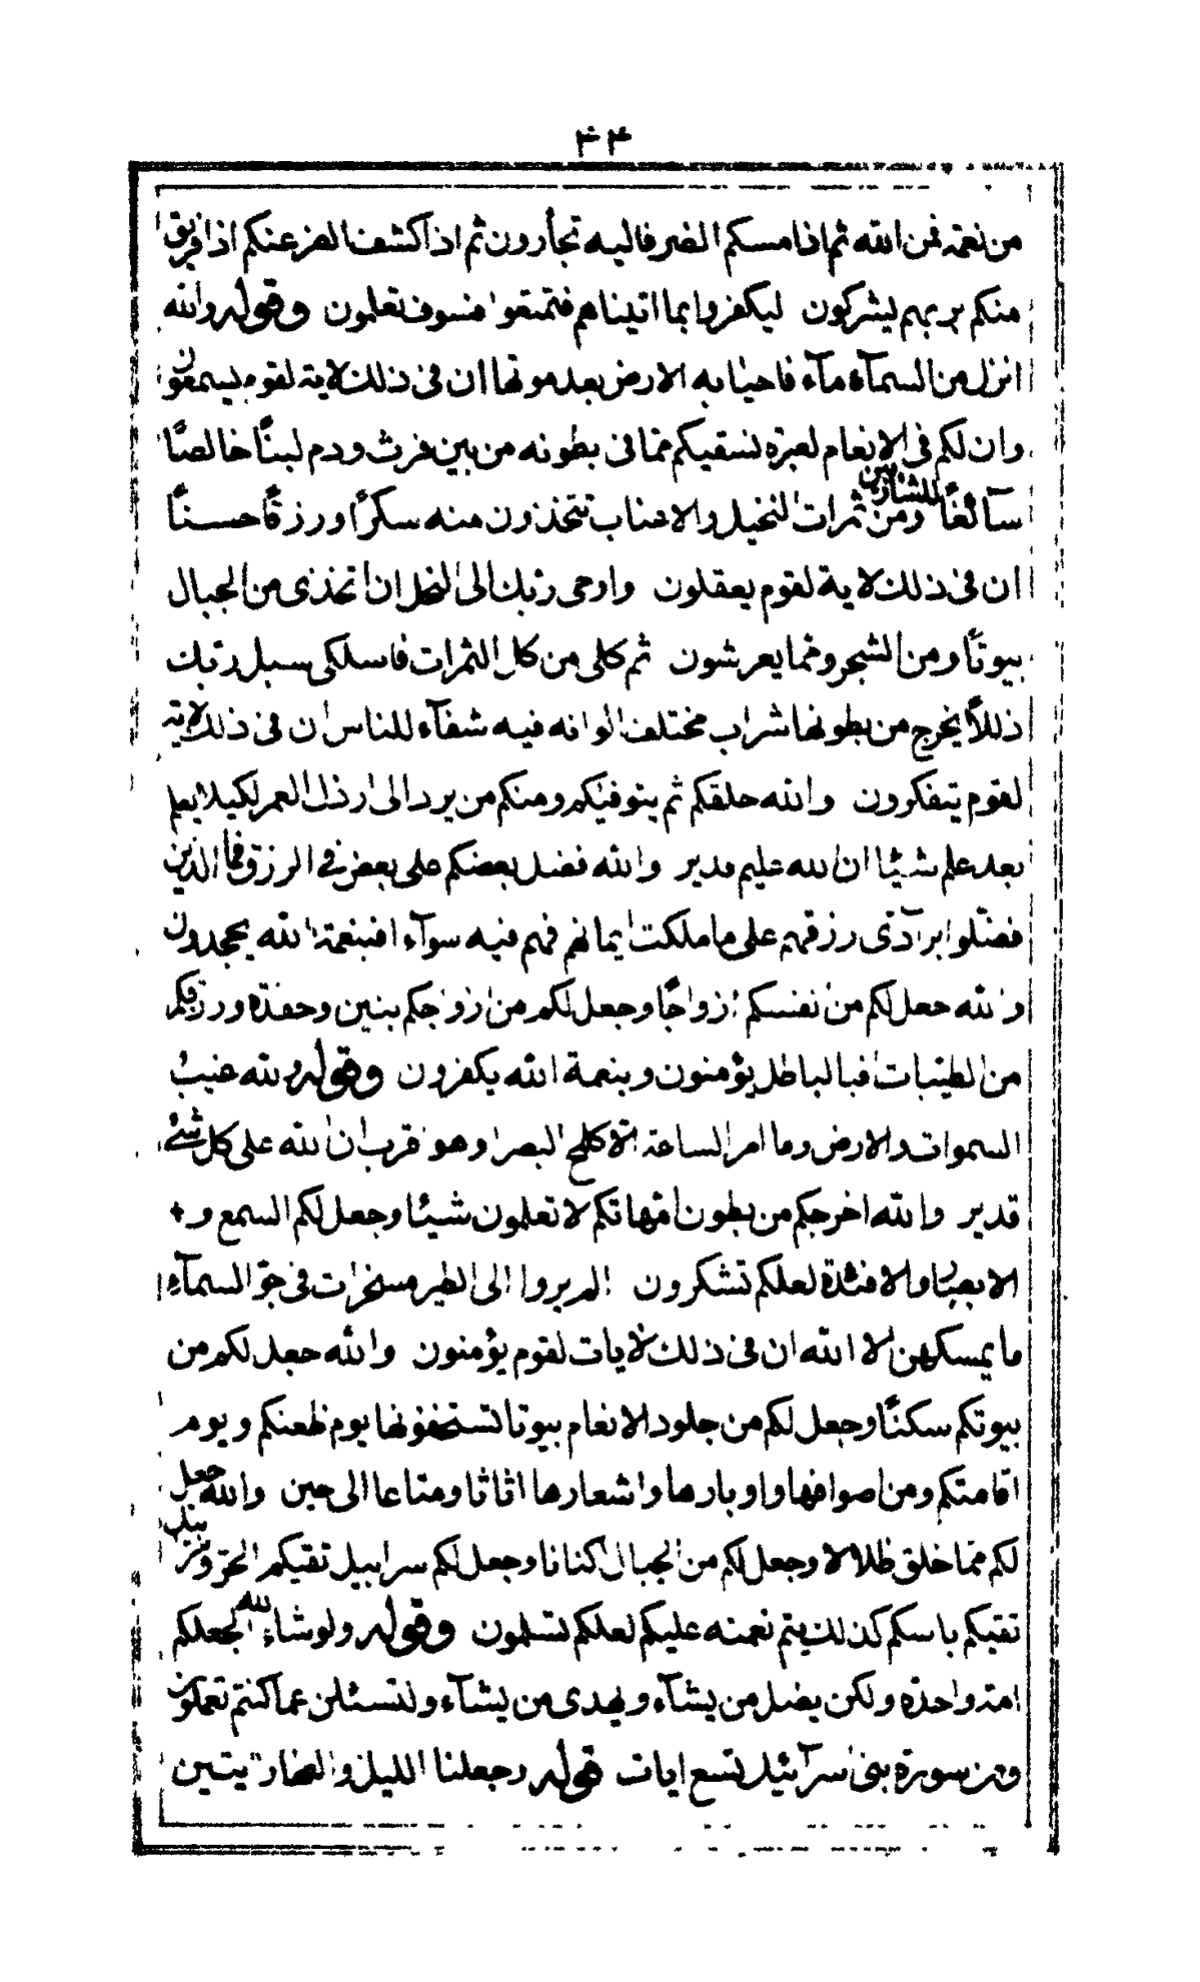 ۳۴
من نعمة فمن الله ثم اذا مسكم الضر فاليه تجأرون ثم اذا كشف الضر عنكم اذا فريق
منكم بربهم يشركون ليكفروا بما اتيناهم فتمتعوا فسوف تعلمون وقوله والله
انزل من السمآء مآء فاحيا به الارض بعد موتها ان فى ذلك لاية لقوم يسمعون
وان لكم فى الانعام لعبرة نسقيكم مما فى بطونه من بين فرث ودم لبنًا خالصًا
سآئغًا للشاربين ومن ثمرات النخيل والاعناب تتخذون منه سكرًا ورزقًا حسنًا
ان فى ذلك لاية لقوم يعقلون واوحى ربك الى النحل ان اتخذى من الجبال
بيوتًا ومن الشجر ومما يعرشون ثم كلى من كل الثمرات فاسلكى سبل ربك
ذللًا يخرج من بطونها شراب مختلف الوانه فيه شفآء للناس ان فى ذلك لاية
لقوم يتفكرون والله خلقكم ثم يتوفيكم ومنكم من يرد الى ارذل العمر لكيلا يعلم
بعد علم شيئا ان الله عليم قدير والله فضل بعضكم على بعض فى الرزق فما الذين
فضلوا برآدى رزقهم على ما ملكت ايمانهم فهم فيه سوآء افبنعمة الله يجحدون
والله جعل لكم من انفسكم ازواجًا وجعل لكم من ازواجكم بنين وحفدة ورزقكم
من الطيبات افبالباطل يؤمنون وبنعمة الله يكفرون وقوله ولله غيب
السموات والارض وما امر الساعة الا كلمح البصر او هو اقرب ان الله على كل شئ
قدير والله اخرجكم من بطون امهاتكم لا تعلمون شيئا وجعل لكم السمع و
الابصار والافئدة لعلكم تشكرون الم يروا الى الطير مسخرات فى جو السمآء
ما يمسكهن الا الله ان فى ذلك لايات لقوم يؤمنون والله جعل لكم من
بيوتكم سكنًا وجعل لكم من جلود الانعام بيوتا تستخفونها يوم ظعنكم ويوم
اقامتكم ومن اصوافها واوبارها واشعارها اثاثا ومتاعا الى حين والله جعل
لكم مما خلق ظلالا وجعل لكم من الجبال اكنانا وجعل لكم سرابيل تقيكم الحر وسرابيل
تقيكم باسكم كذلك يتم نعمته عليكم لعلكم تسلمون وقوله ولو شاء الله لجعلكم
امة واحدة ولكن يضل من يشآء ويهدى من يشآء ولتسئلن عما كنتم تعملون
ومن سورة بنى اسرآئيل تسع ايات قوله وجعلنا الليل والنهار ايتين